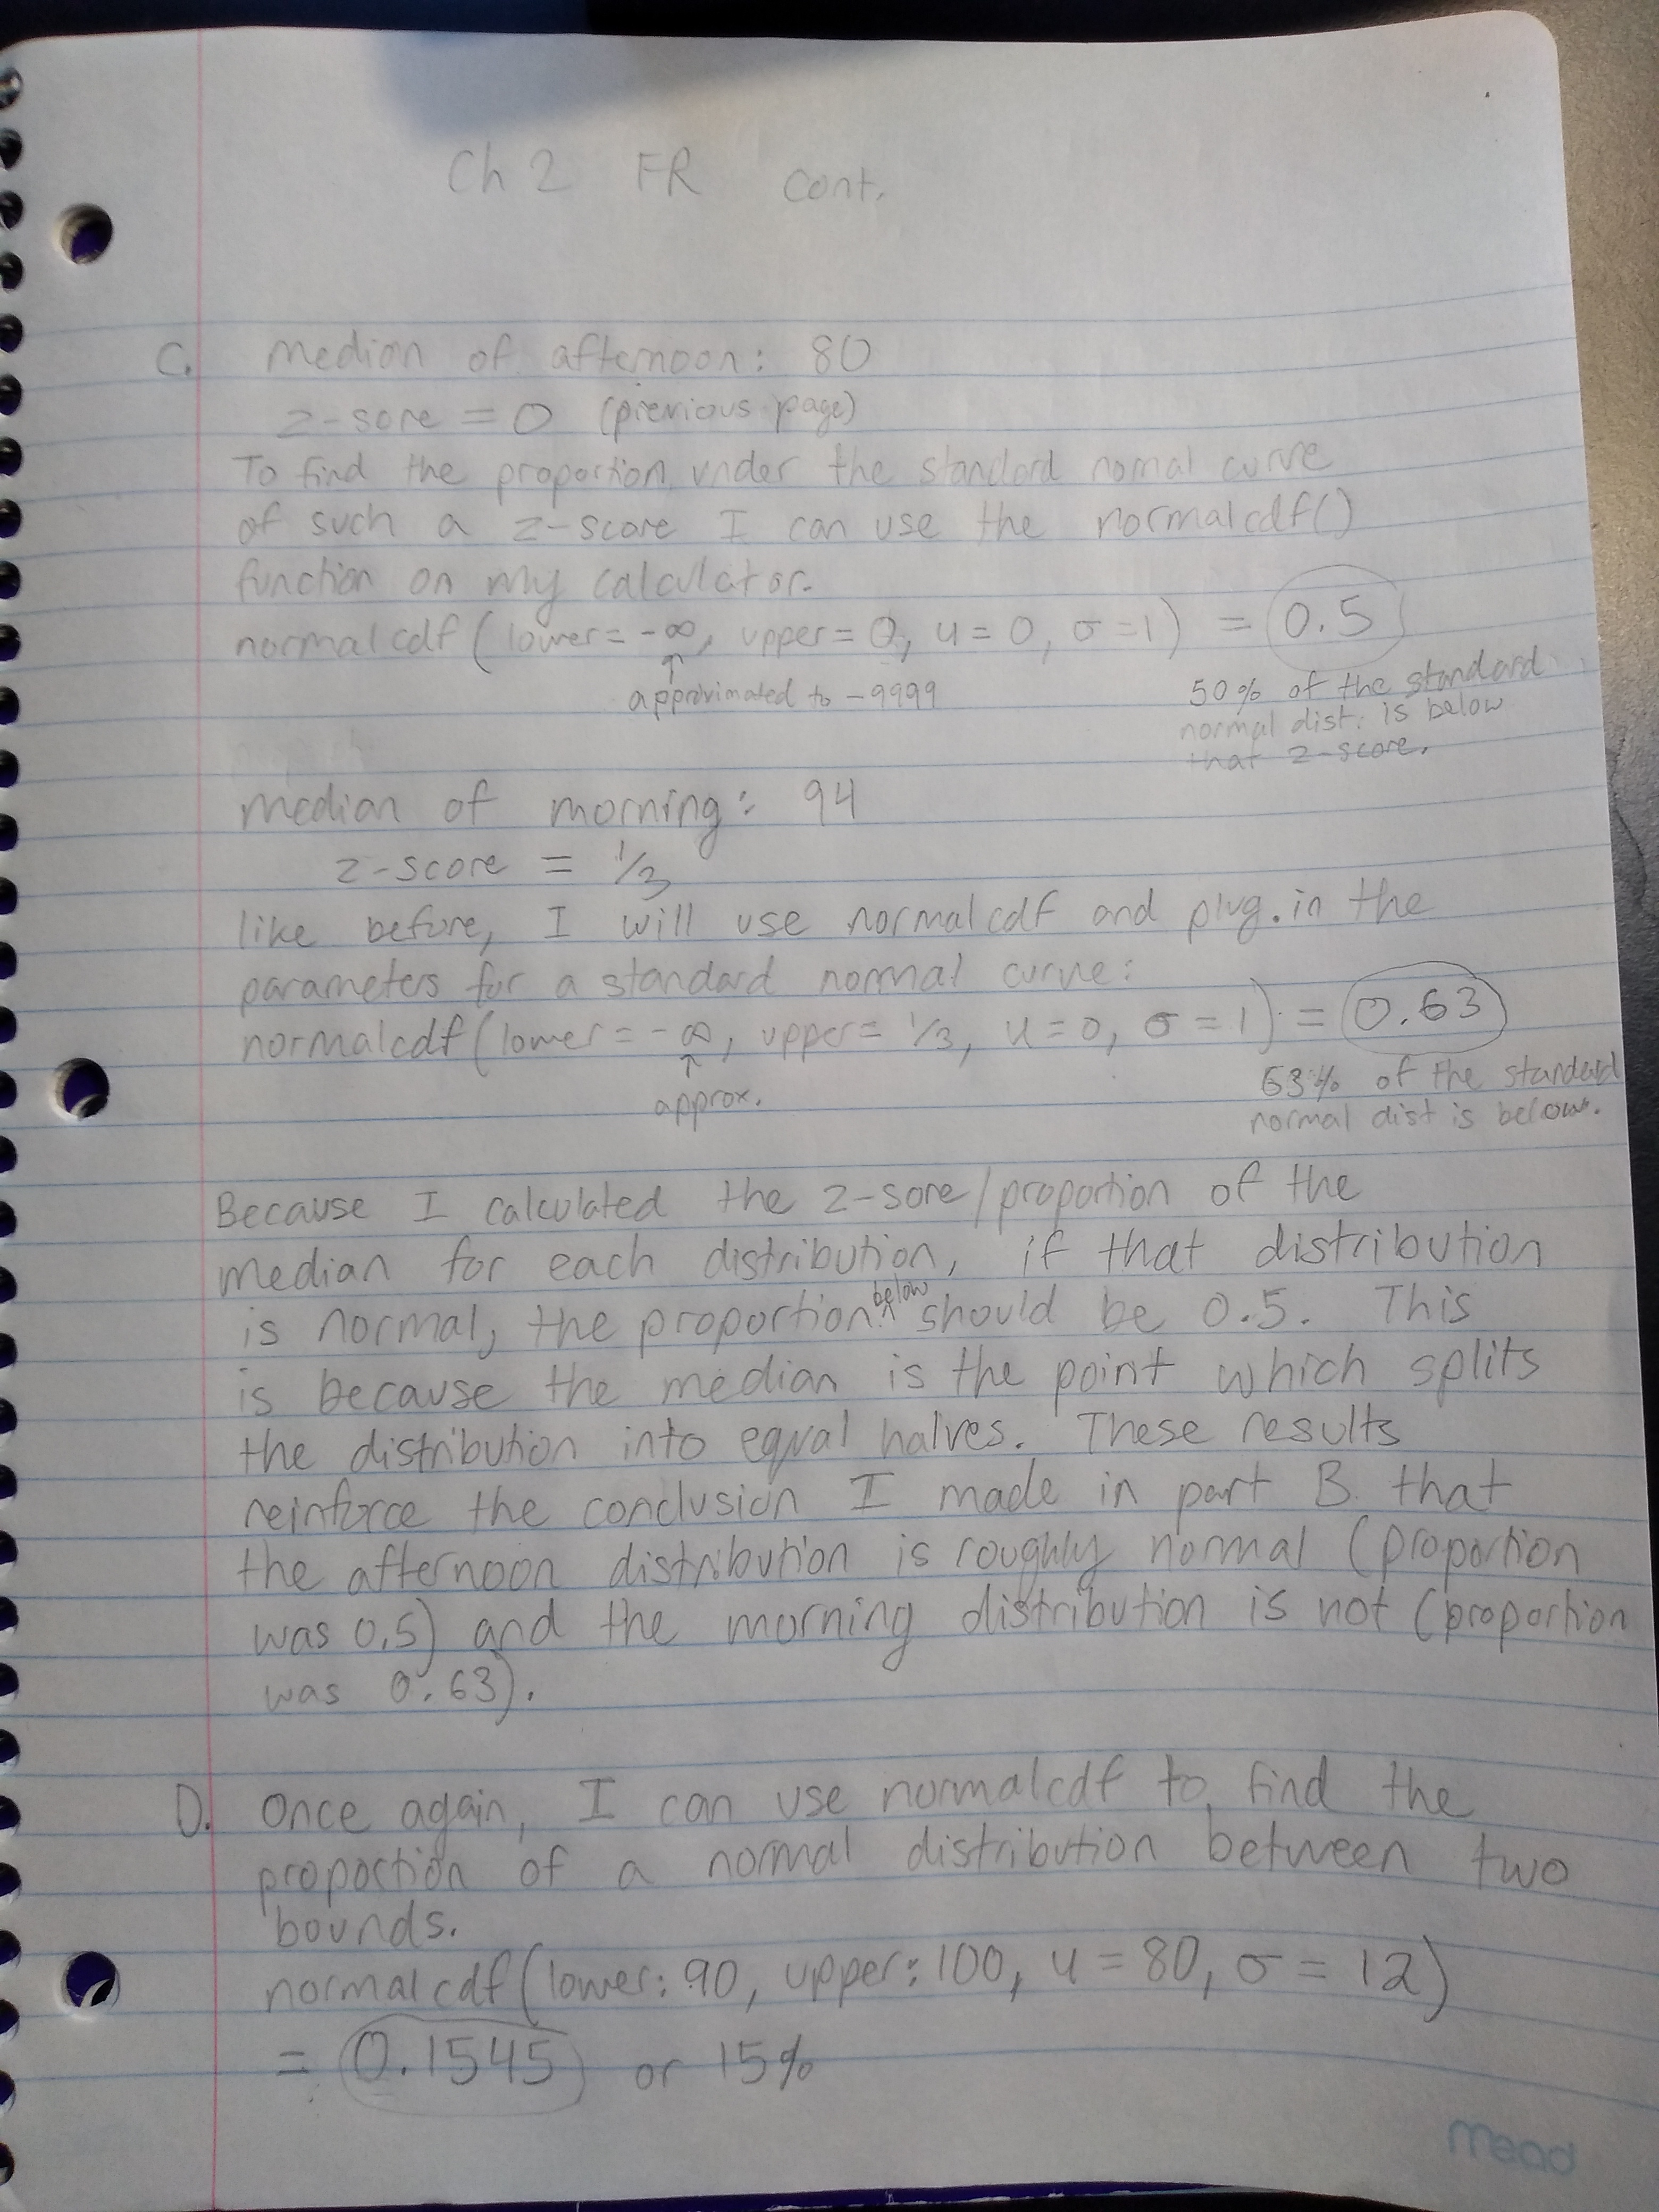 Ch 2 FR cont.
C. median of afternoon: 80
z-sore = 0 (previous page)
To find the proportion under the standard normal curve
of such a z-score I can use the normalcdf()
function on my calculator.
normalcdf (lower = -∞, upper = 0, u = 0, σ = 1) = 0.5
↑
approximated to -9999
50% of the standard
normal dist. is below
that z-score.
median of morning: 94
z-score = 1/3
like before, I will use normalcdf and plug in the
parameters for a standard normal curve:
normalcdf (lower = -∞, upper = 1/3, u = 0, σ = 1) = 0.63
↑
approx.
63% of the standard
normal dist is below.
Because I calculated the z-sore/proportion of the
median for each distribution, if that distribution
is normal, the proportion below should be 0.5. This
is because the median is the point which splits
the distribution into equal halves. These results
reinforce the conclusion I made in part B. that
the afternoon distribution is roughly normal (proportion
was 0.5) and the morning distribution is not (proportion
was 0.63).
D. Once again, I can use normalcdf to find the
proportion of a normal distribution between two
bounds.
normalcdf (lower: 90, upper: 100, u = 80, σ = 12)
= 0.1545 or 15%
mead